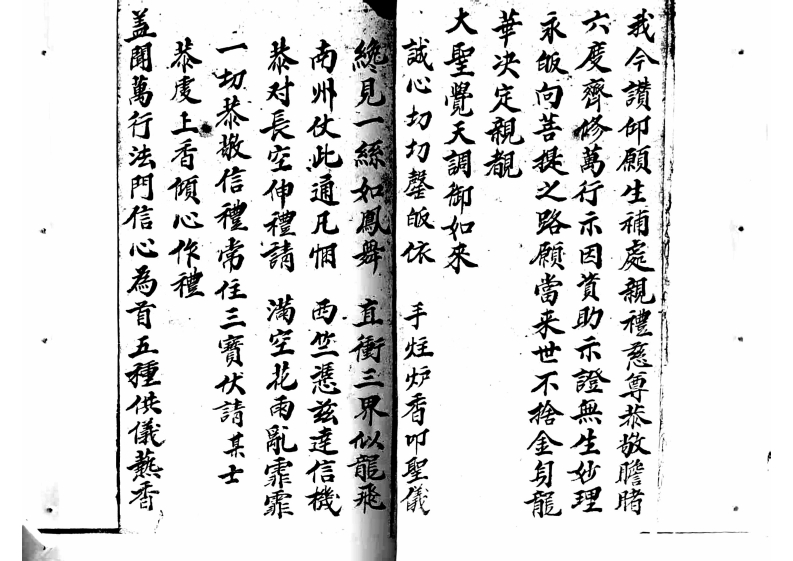 我今讃仰願生補處親禮慈尊恭敬瞻睹
六度齊修萬行示因資助示證無生妙理
永皈向菩提之路願當来世不捨金身龍
華决定親覩
大聖覺天調御如来
誠心切切罄皈依 手炷炉香叩聖儀
纔見一絲如鳳舞 直衝三界似龍飛
南州仗此通凡悃 西竺憑兹達信機
恭对長空伸禮請 滿空花雨亂霏霏
一切恭敬信禮常住三寶伏請某士
恭虔上香傾心作禮
盖聞萬行法門信心為首五種供儀爇香